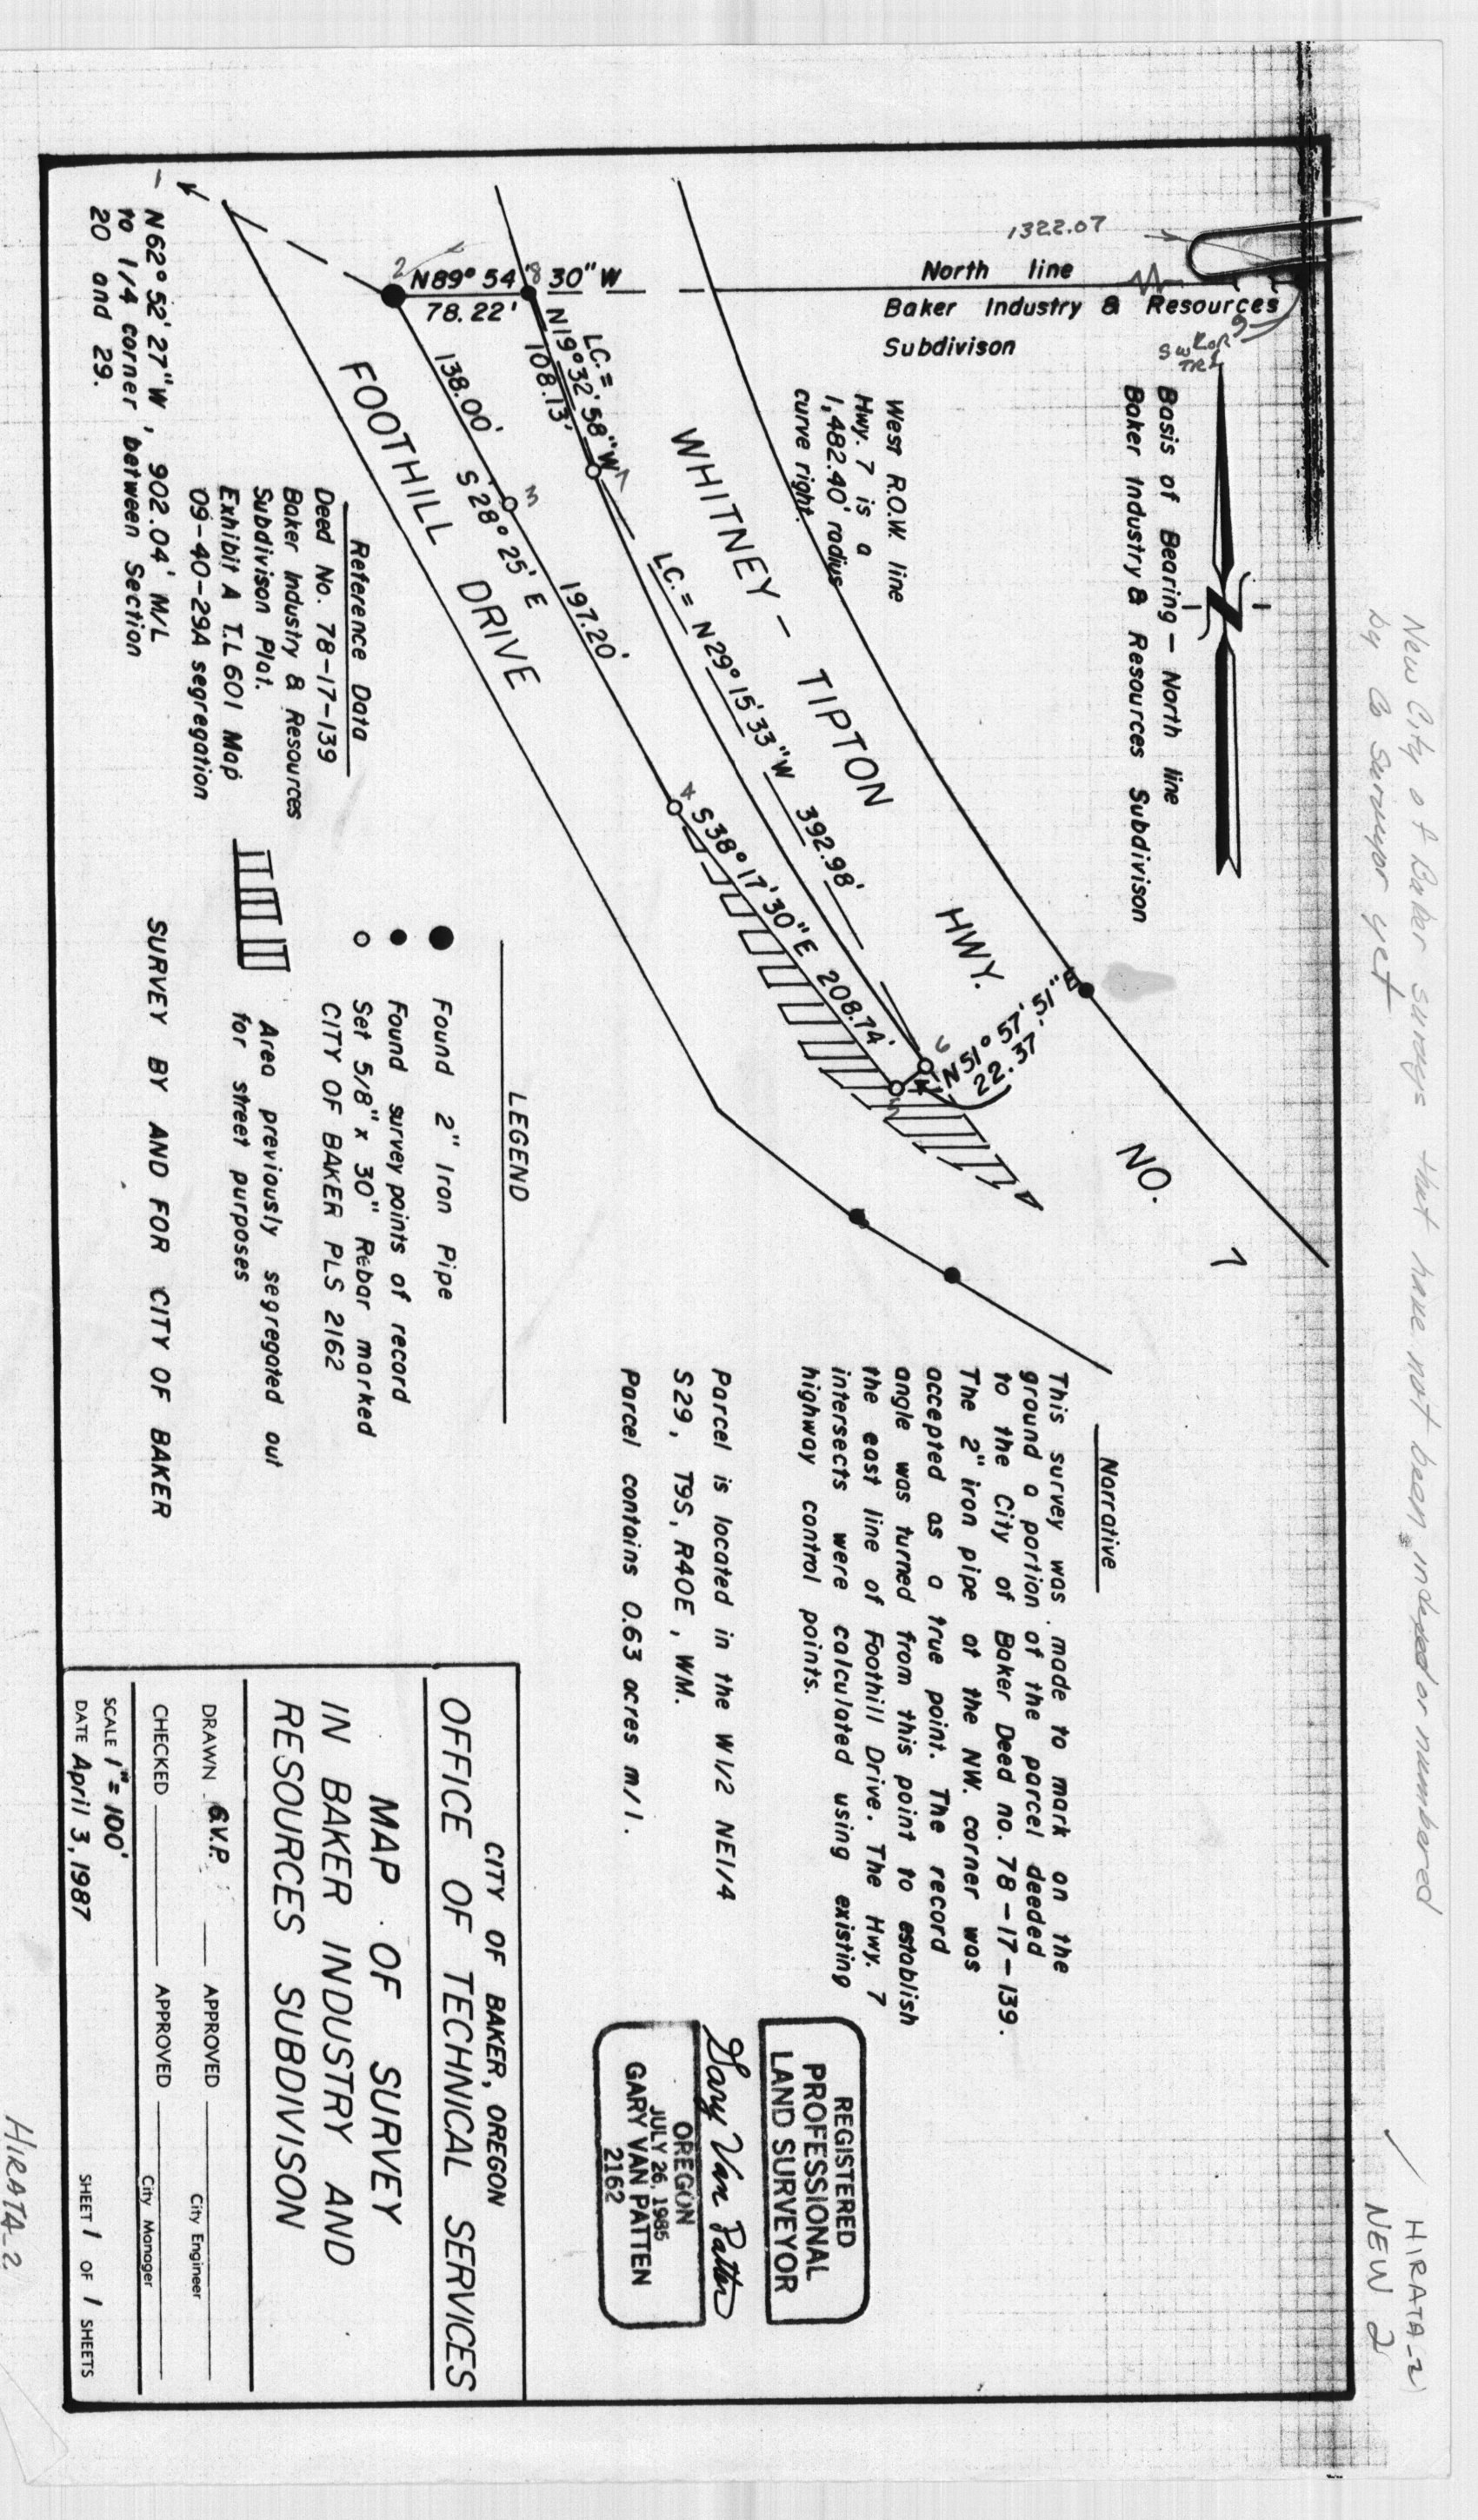 New City of Baker surveys that have not been indexed or numbered
by Co Surveyor yet
HIRATA-2
NEW 2
1322.07
North line
Baker Industry & Resources
Subdivison
SW COR
TR 1
9
Basis of Bearing - North line
Baker Industry & Resources Subdivison
West R.O.W. line
Hwy. 7 is a
1,482.40' radius
curve right.
N89° 54' 30" W
78.22'
2
8
LC. =
N19° 32' 58" W
108.13'
7
138.00'
3
S 28° 25' E
197.20'
LC. = N29° 15' 33" W 392.98'
4
S38° 17' 30" E 208.74'
6
5
N51° 57' 51" E
22.37'
WHITNEY - TIPTON HWY. NO. 7
FOOTHILL DRIVE
1
N62° 52' 27" W, 902.04' M/L
to 1/4 corner, between Section
20 and 29.
Reference Data
Deed No. 78-17-139
Baker Industry & Resources
Subdivison Plat.
Exhibit A T.L 601 Map
09-40-29A segregation
LEGEND
Found 2" Iron Pipe
Found survey points of record
Set 5/8" x 30" Rebar marked
CITY OF BAKER PLS 2162
Area previously segregated out
for street purposes
SURVEY BY AND FOR CITY OF BAKER
Narrative
This survey was made to mark on the
ground a portion of the parcel deeded
to the City of Baker Deed no. 78-17-139.
The 2" iron pipe at the NW. corner was
accepted as a true point. The record
angle was turned from this point to establish
the east line of Foothill Drive. The Hwy. 7
intersects were calculated using existing
highway control points.
Parcel is located in the W1/2 NE1/4
S29, T9S, R40E, WM.
Parcel contains 0.63 acres m/l.
REGISTERED
PROFESSIONAL
LAND SURVEYOR
Gary Van Patten
OREGON
JULY 26, 1985
GARY VAN PATTEN
2162
CITY OF BAKER, OREGON
OFFICE OF TECHNICAL SERVICES
MAP OF SURVEY
IN BAKER INDUSTRY AND
RESOURCES SUBDIVISON
DRAWN G.V.P. APPROVED
City Engineer
CHECKED APPROVED
City Manager
SCALE 1" = 100'
DATE April 3, 1987 SHEET 1 OF 1 SHEETS
HIRATA-2